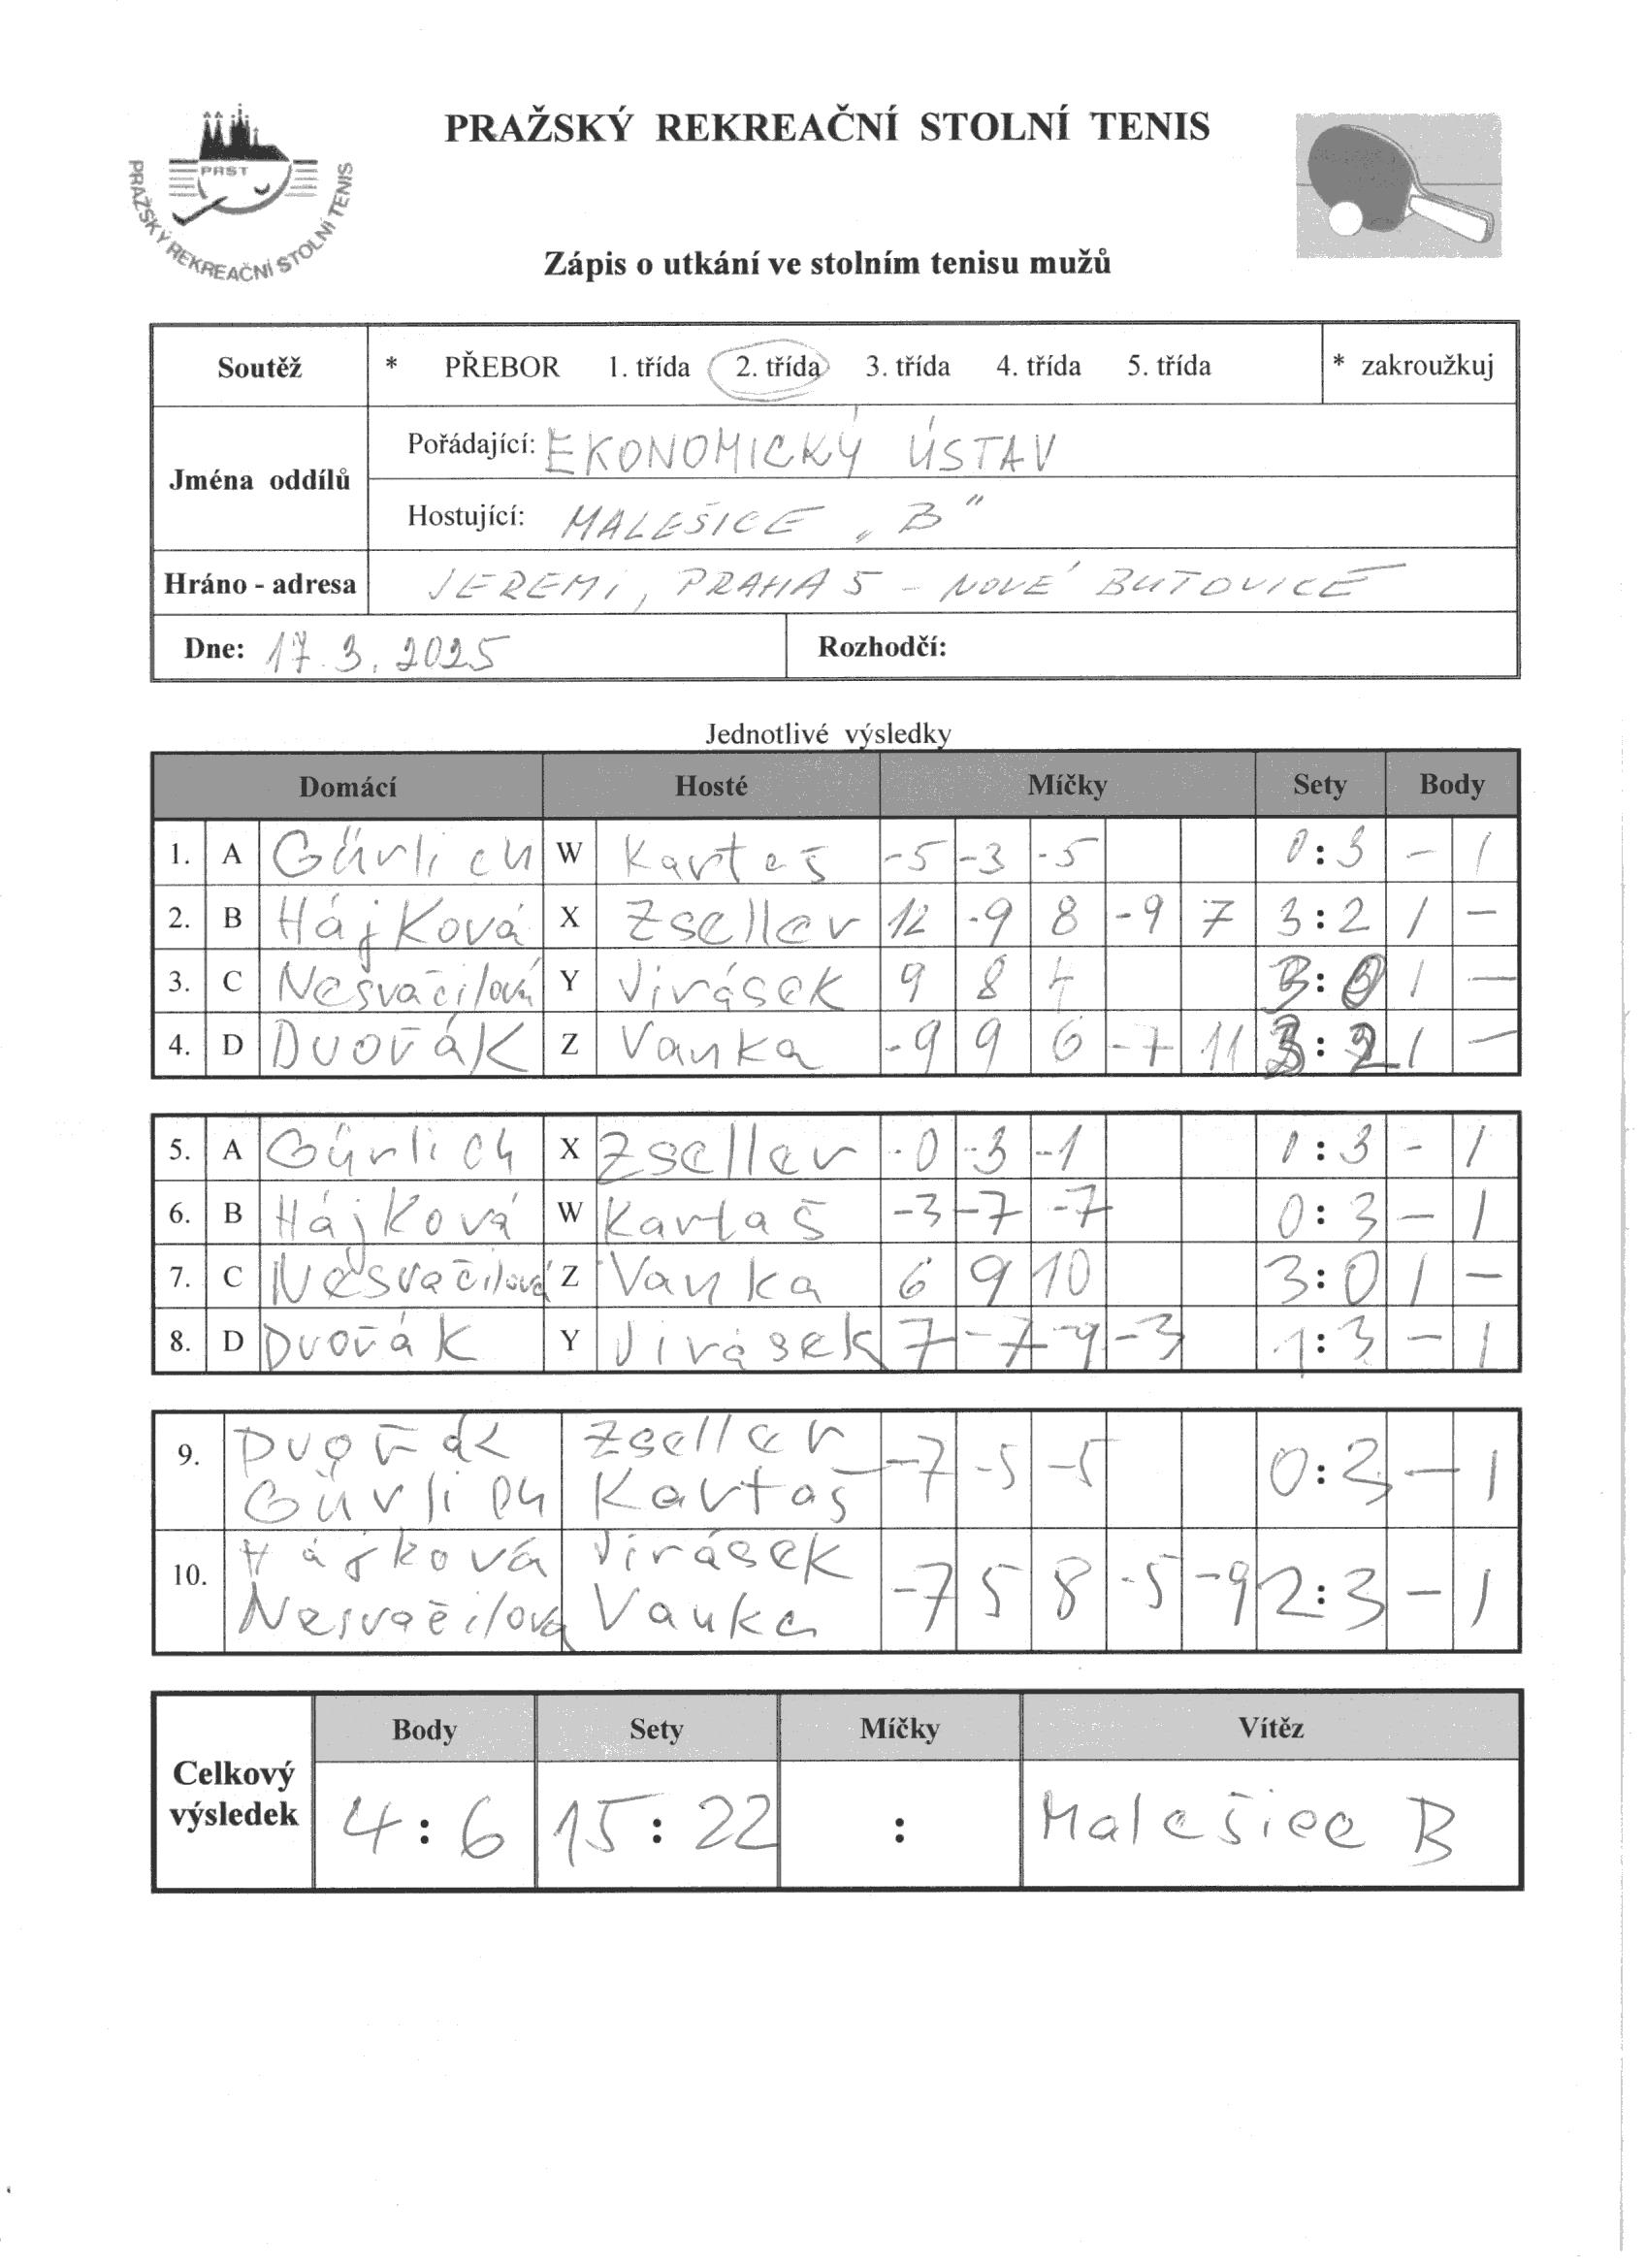 PRAŽSKÝ REKREAČNÍ STOLNÍ TENIS
PRST
PRAŽSKÝ REKREAČNÍ STOLNÍ TENIS
Zápis o utkání ve stolním tenisu mužů
Soutěž * PŘEBOR 1. třída 2. třída 3. třída 4. třída 5. třída * zakroužkuj
Jména oddílů
Pořádající: EKONOMICKÝ ÚSTAV
Hostující: MALEŠICE „B"
Hráno - adresa JEREMI, PRAHA 5 - NOVÉ BUTOVICE
Dne: 17.3.2025 Rozhodčí:
Jednotlivé výsledky
Domácí Hosté Míčky Sety Body
1. A Gürlich W Kartaš -5 -3 -5 0:3 - 1
2. B Hájková X Zseller 12 -9 8 -9 7 3:2 1 -
3. C Nesvačilová Y Jirásek 9 8 4 3:0 1 -
4. D Dvořák Z Vanka -9 9 6 -7 11 3:2 1 -
5. A Gürlich X Zseller -0 -3 -1 0:3 - 1
6. B Hájková W Kartaš -3 -7 -7 0:3 - 1
7. C Nesvačilová Z Vanka 6 9 10 3:0 1 -
8. D Dvořák Y Jirásek 7 -7 -9 -3 1:3 - 1
9. Dvořák Zseller -7 -5 -5 0:3 - 1
Gürlich Kartaš
10. Hájková Jirásek -7 5 8 -5 -9 2:3 - 1
Nesvačilová Vanka
Celkový výsledek
Body Sety Míčky Vítěz
4:6 15:22 : Malešice B